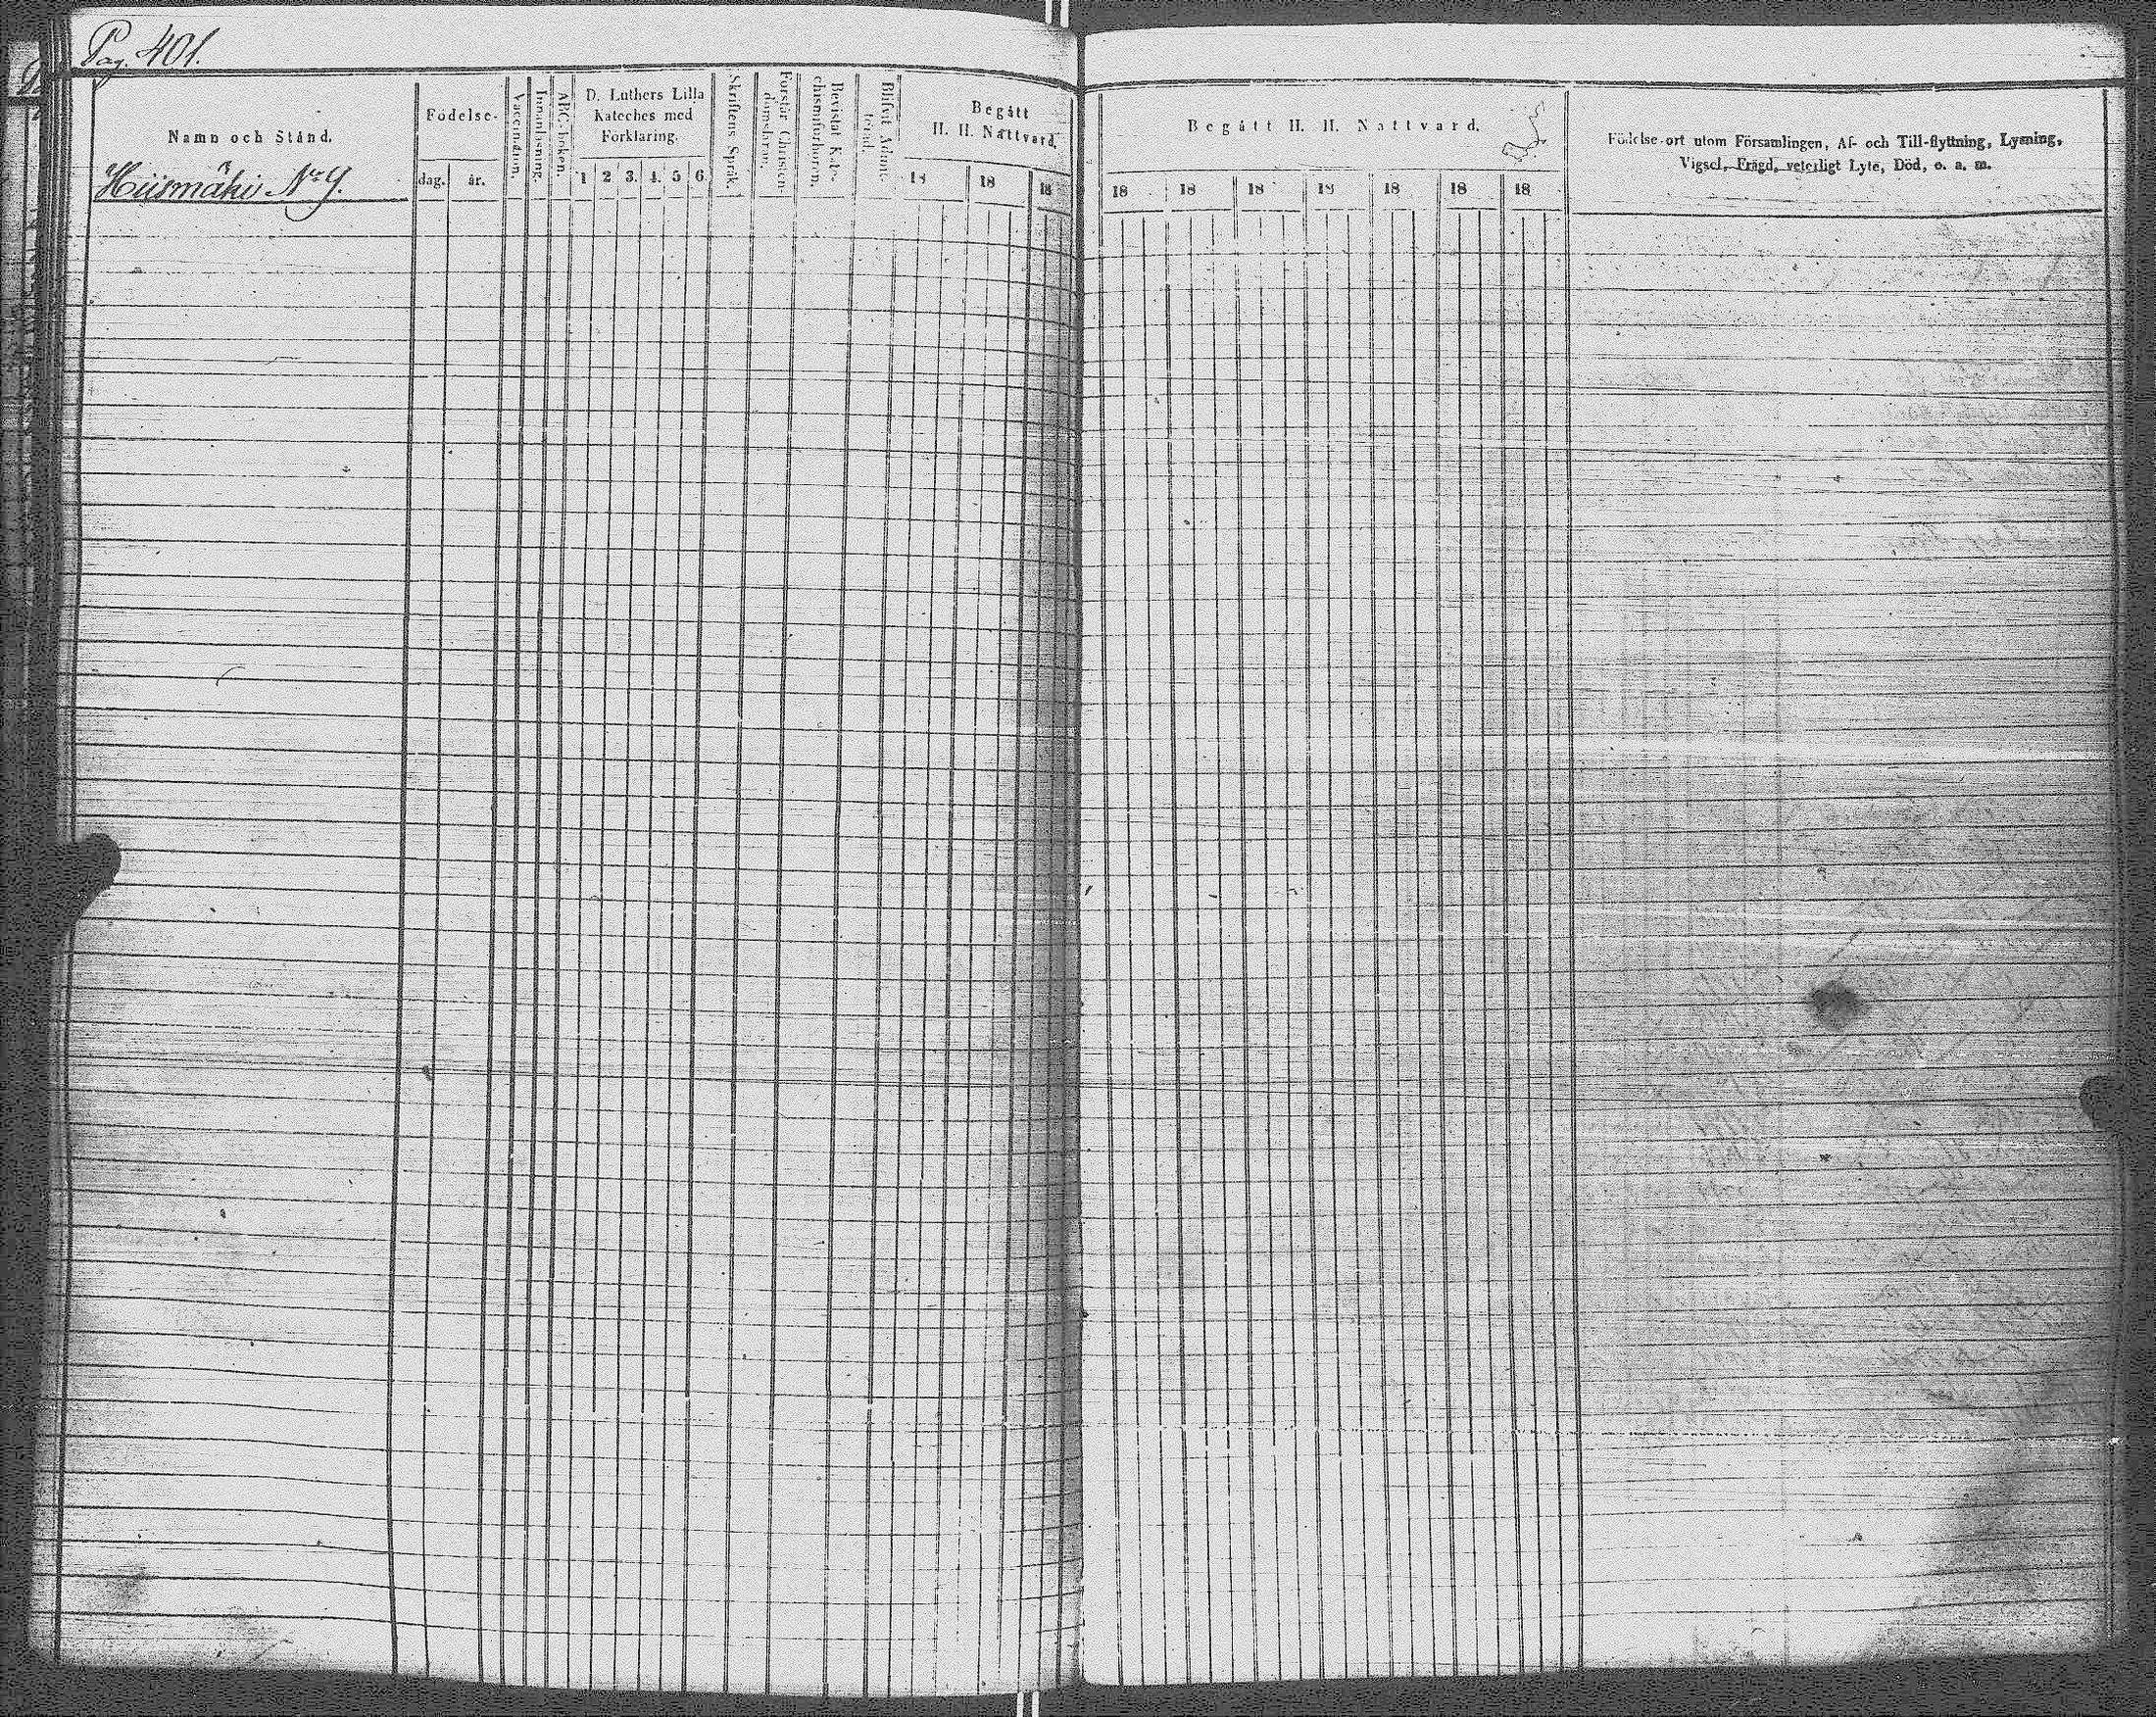 Pag. 401.
Namn och Stånd.
Hiismäki No 9.
Födelse-
dag. år.
Vaccination.
Innanläsning.
ABC-boken.
D. Luthers Lilla
Kateches med
Förklaring.
1 2 3. 4. 5 6
Skriftens Språk.
Förstår Christen-
domsläran.
Bevistat Kate-
chismiförhören.
Blifvit Admit-
terad.
Begått
H. H. Nattvard.
18 18 18
Begått H. H. Nattvard.
18 18 18 18 18 18 18
Födelse-ort utom Församlingen, Af- och Till-flyttning, Lysning,
Vigsel, Frägd, veterligt Lyte, Död, o. a. m.